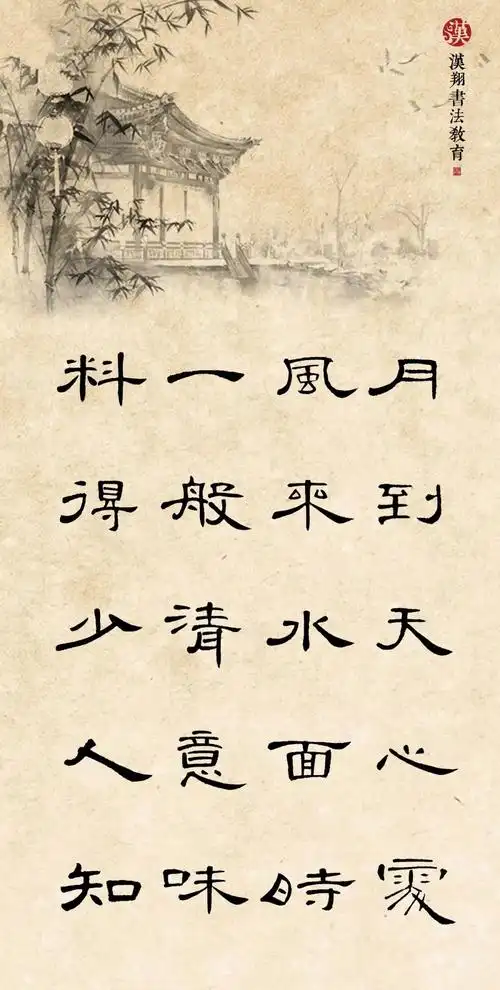 漢
漢翔書法教育
月到天心處
風來水面時
一般清意味
料得少人知